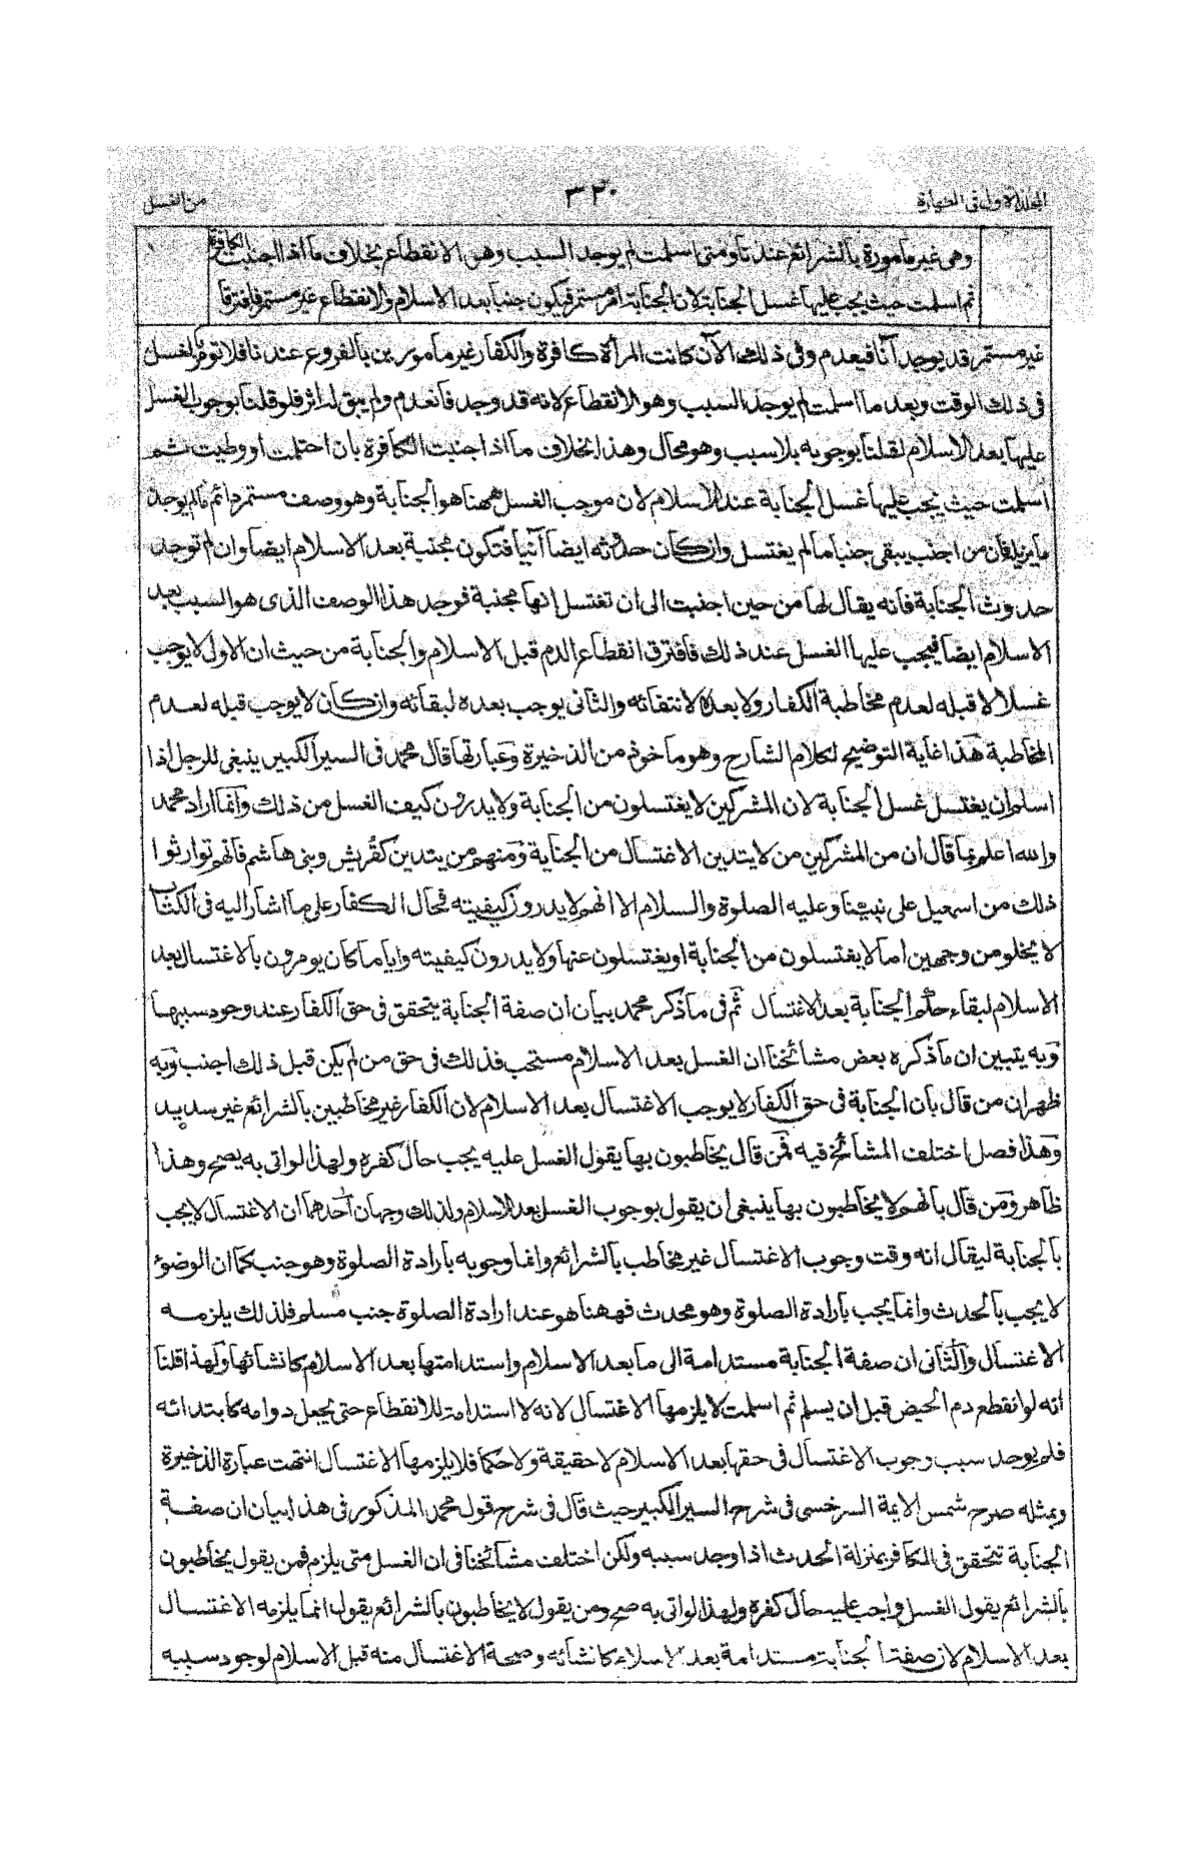 المجلد الاول فى الطهارة
٣٢٠
من الغسل
وهى غير مأمورة بالشرائع عندنا ومتى اسلمت لم يوجد السبب وهو الانقطاع بخلاف ما اذا اجنبت الكافرة
ثم اسلمت حيث يجب عليها غسل الجنابة لان الجنابة امر مستمر فيكون جنبا بعد الاسلام والانقطاع غير مستمر فافترقا
غير مستمر قد يوجد آنا فيعدم وفى ذلك الآن كانت المرأة كافرة والكفار غير مأمورين بالفروع عندنا فلا تومر بالغسل
فى ذلك الوقت وبعد ما اسلمت لم يوجد السبب وهو الانقطاع لانه قد وجد فانعدم ولم يبق له اثر فلو قلنا بوجوب الغسل
عليها بعد الاسلام لقلنا بوجوبه بلا سبب وهو محال وهذا بخلاف ما اذا اجنبت الكافرة بان احتلمت او وطيت ثم
اسلمت حيث يجب عليها غسل الجنابة عند الاسلام لان موجب الغسل ههنا هو الجنابة وهو وصف مستمر دائم مالم يوجد
ما يزيله فان من اجنب يبقى جنبا ما لم يغتسل وان كان حدوثه ايضا آنيا فتكون مجنبة بعد الاسلام ايضا وان لم توجد
حدوث الجنابة فانه يقال لها من حين اجنبت الى ان تغتسل انها مجنبة فوجد هذا الوصف الذى هو السبب بعد
الاسلام ايضا فيجب عليها الغسل عند ذلك فافترق انقطاع الدم قبل الاسلام والجنابة من حيث ان الاول لا يوجب
غسلا لا قبله لعدم مخاطبة الكفار ولا بعده لانتفائه والثانى يوجب بعده لبقائه وان كان لا يوجب قبله لعدم
المخاطبة هذا غاية التوضيح لكلام الشارح وهو ماخوذ من الذخيرة وعبارتها قال محمد فى السير الكبير ينبغى للرجل اذا
اسلم ان يغتسل غسل الجنابة لان المشركين لا يغتسلون من الجنابة ولا يدرون كيف الغسل من ذلك وانما اراد محمد
والله اعلم بما قال ان من المشركين من لا يتدين الاغتسال من الجنابة ومنهم من يتدين كقريش وبنى هاشم فانهم توارثوا
ذلك من اسمعيل على نبينا وعليه الصلوة والسلام الا انهم لا يدرون كيفيته فحال الكفار على ما اشار اليه فى الكتاب
لا يخلو من وجهين اما لا يغتسلون من الجنابة او يغتسلون عنها ولا يدرون كيفيته واياما كان يومرون بالاغتسال بعد
الاسلام لبقاء حكم الجنابة بعد الاغتسال ثم فى ما ذكر محمد بيان ان صفة الجنابة يتحقق فى حق الكفار عند وجود سببها
وبه يتبين ان ما ذكره بعض مشائخنا ان الغسل بعد الاسلام مستحب فذلك فى حق من لم يكن قبل ذلك اجنب وبه
ظهر ان من قال بان الجنابة فى حق الكفار لا يوجب الاغتسال بعد الاسلام لان الكفار غير مخاطبين بالشرائع غير سديد
وهذا فصل اختلف المشائخ فيه فمن قال يخاطبون بها يقول الغسل عليه يجب حال كفره ولهذا لو اتى به يصح وهذا
ظاهر ومن قال بانهم لا يخاطبون بها ينبغى ان يقول بوجوب الغسل بعد الاسلام ولذلك وجهان احدهما ان الاغتسال لا يجب
بالجنابة ليقال انه وقت وجوب الاغتسال غير مخاطب بالشرائع وانما وجوبه بارادة الصلوة وهو جنب كما ان الوضوء
لا يجب بالحدث وانما يجب بارادة الصلوة وهو محدث فههنا هو عند ارادة الصلوة جنب مسلم فلذلك يلزمه
الاغتسال والثانى ان صفة الجنابة مستدامة الى ما بعد الاسلام واستدامتها بعد الاسلام كانشائها ولهذا قلنا
انه لو انقطع دم الحيض قبل ان يسلم ثم اسلمت لا يلزمها الاغتسال لانه لا استدامة للانقطاع حتى يجعل دوامه كابتدائه
فلم يوجد سبب وجوب الاغتسال فى حقها بعد الاسلام لا حقيقة ولا حكما فلا يلزمها الاغتسال انتهت عبارة الذخيرة
وبمثله صرح شمس الايمة السرخسى فى شرح السير الكبير حيث قال فى شرح قول محمد المذكور فى هذا بيان ان صفة
الجنابة تتحقق فى الكافر بمنزلة الحدث اذا وجد سببه ولكن اختلف مشائخنا فى ان الغسل متى يلزم فمن يقول يخاطبون
بالشرائع يقول الغسل واجب عليه حال كفره ولهذا لو اتى به صح ومن يقول لا يخاطبون بالشرائع يقول انما يلزمه الاغتسال
بعد الاسلام لان صفة الجنابة مستدامة بعد الاسلام كانشائه وصحة الاغتسال منه قبل الاسلام لوجود سببه